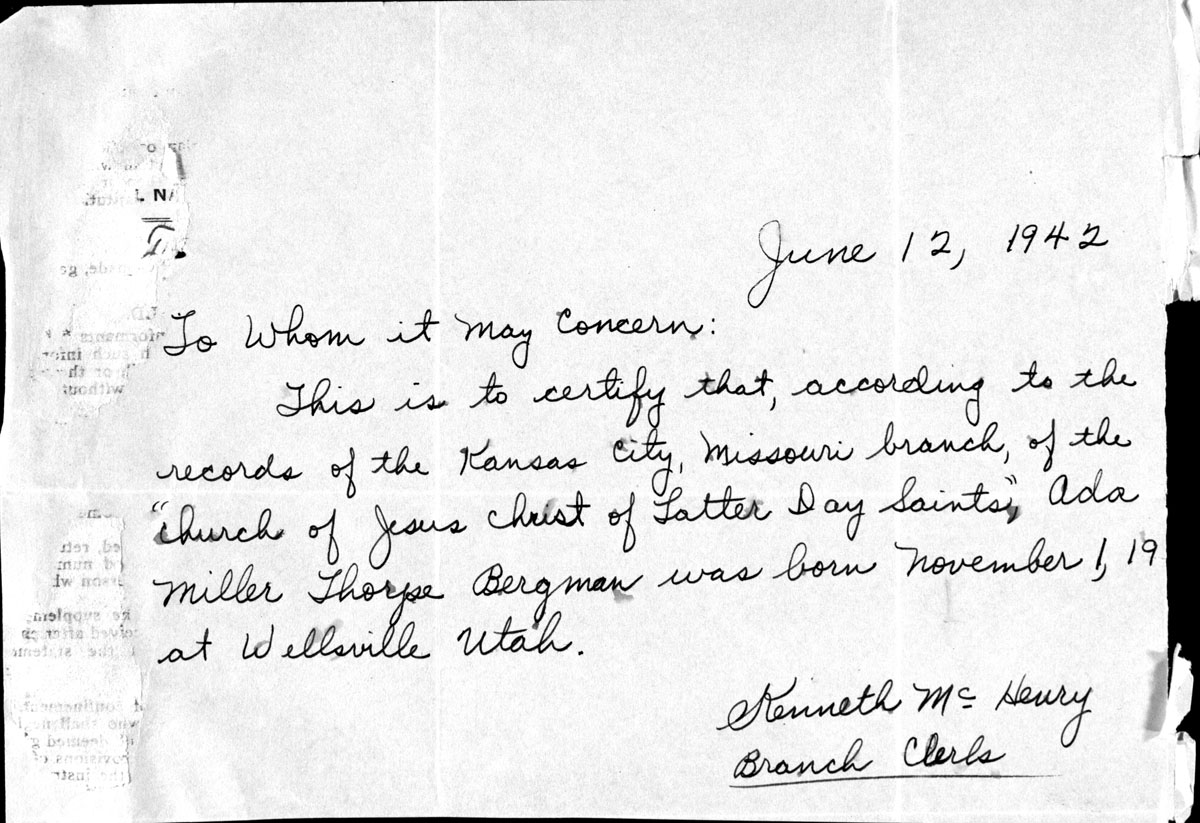 June 12, 1942
To Whom it May Concern:
This is to certify that, according to the
records of the Kansas City, Missouri branch, of the
"Church of Jesus Christ of Latter Day Saints", Ada
Miller Thorpe Bergman was born November 1, 19
at Wellsville Utah.
Kenneth Mc Henry
Branch Clerk